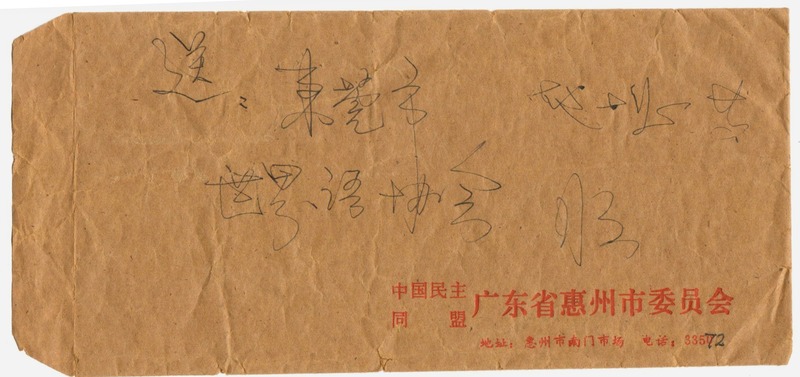 送：東莞市
世界语协会
中国民主同盟 广东省惠州市委员会
地址：惠州市南门市场 电话：33572